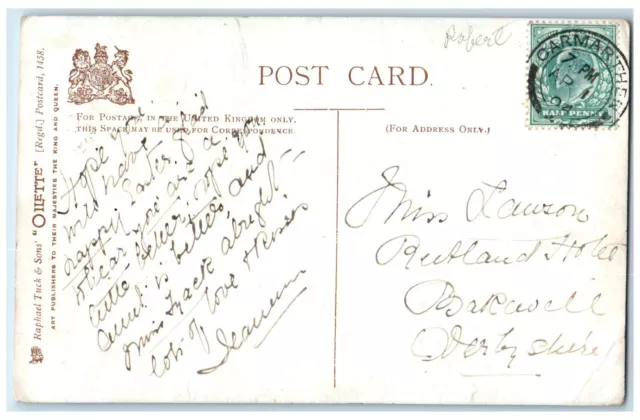 Robert
POST CARD.
For Postage in the United Kingdom only,
this Space may be used for Correspondence.
(For Address Only.)
CARMARTHEN
7 PM
AP 1
04
HALF PENNY
Raphael Tuck & Sons' "OILETTE" [Regd.] Postcard, 1458.
ART PUBLISHERS TO THEIR MAJESTIES THE KING AND QUEEN.
Hope you
will have a
happy Easter, glad
to hear you are a
little better, hope
Aunt is better, and
Miss Track alright
lots of love & kisses
Miss Lawson
Rutland Hotel
Bakewell
Derbyshire